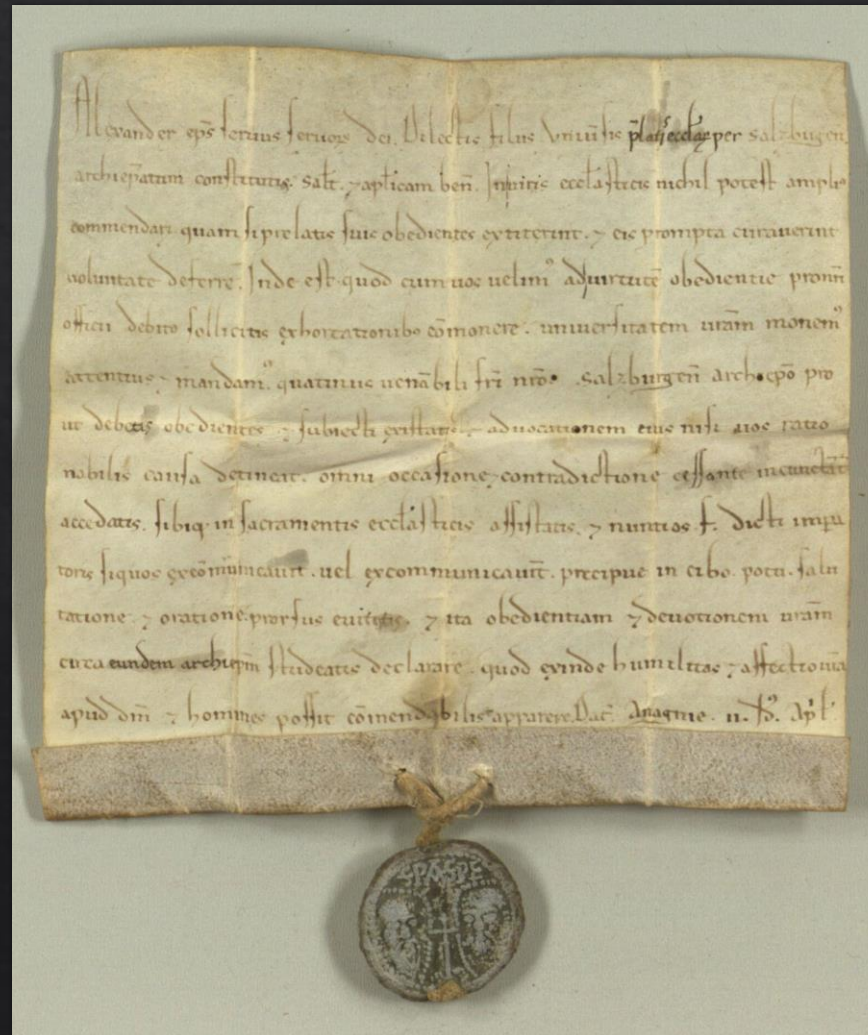 Alexander ep̄s seruus seruoꝝ dei. Dilectis filiis vniũsis p̃latis eccl̃aꝝ per Salzburgeñ.
archiep̃atum constitutis. Sal̃t. ⁊ ap̃licam beñ. In uiris eccl̃asticis nichil potest ampliꝰ
commendari quam si prelatis suis obedientes extiterint. ⁊ eis prompta curauerint
uoluntate deferre. Inde est quod cum uos uelimꝰ ad uirtutẽ obedientie
officii debito sollicitis exhortationibꝰ cõmonere. uniuersitatem ur̃am monemꝰ
attentius ⁊ mandamꝰ. quatinus uenãbili fr̃i nr̃o. Salzburgeñ archiep̃o pro
ut debetis obedientes ⁊ subiecti existatis. ⁊ aduocationem eius nisi uos ratio
nabilis causa detineat. omni occasione ⁊ contradictione cessante incunctãt̃
accedatis. sibiq. in sacramentis eccl̃asticis assistatis. ⁊ nuntios f. dicti impa
toris siquos excõmunicauit. uel excommunicauĩt. precipue in cibo. potu. salu
tatione. ⁊ oratione. prorsus euitetis. ⁊ ita obedientiam ⁊ deuotionem ur̃am
circa eundem archiep̃m studeatis declarare. quod exinde humilitas ⁊ affectio ur̃a
apud dm̃ ⁊ homines possit cõmendabilis apparere. Dat̃. Anagnie. ii. kꝉ. Ap̃l̃.
SPASPE